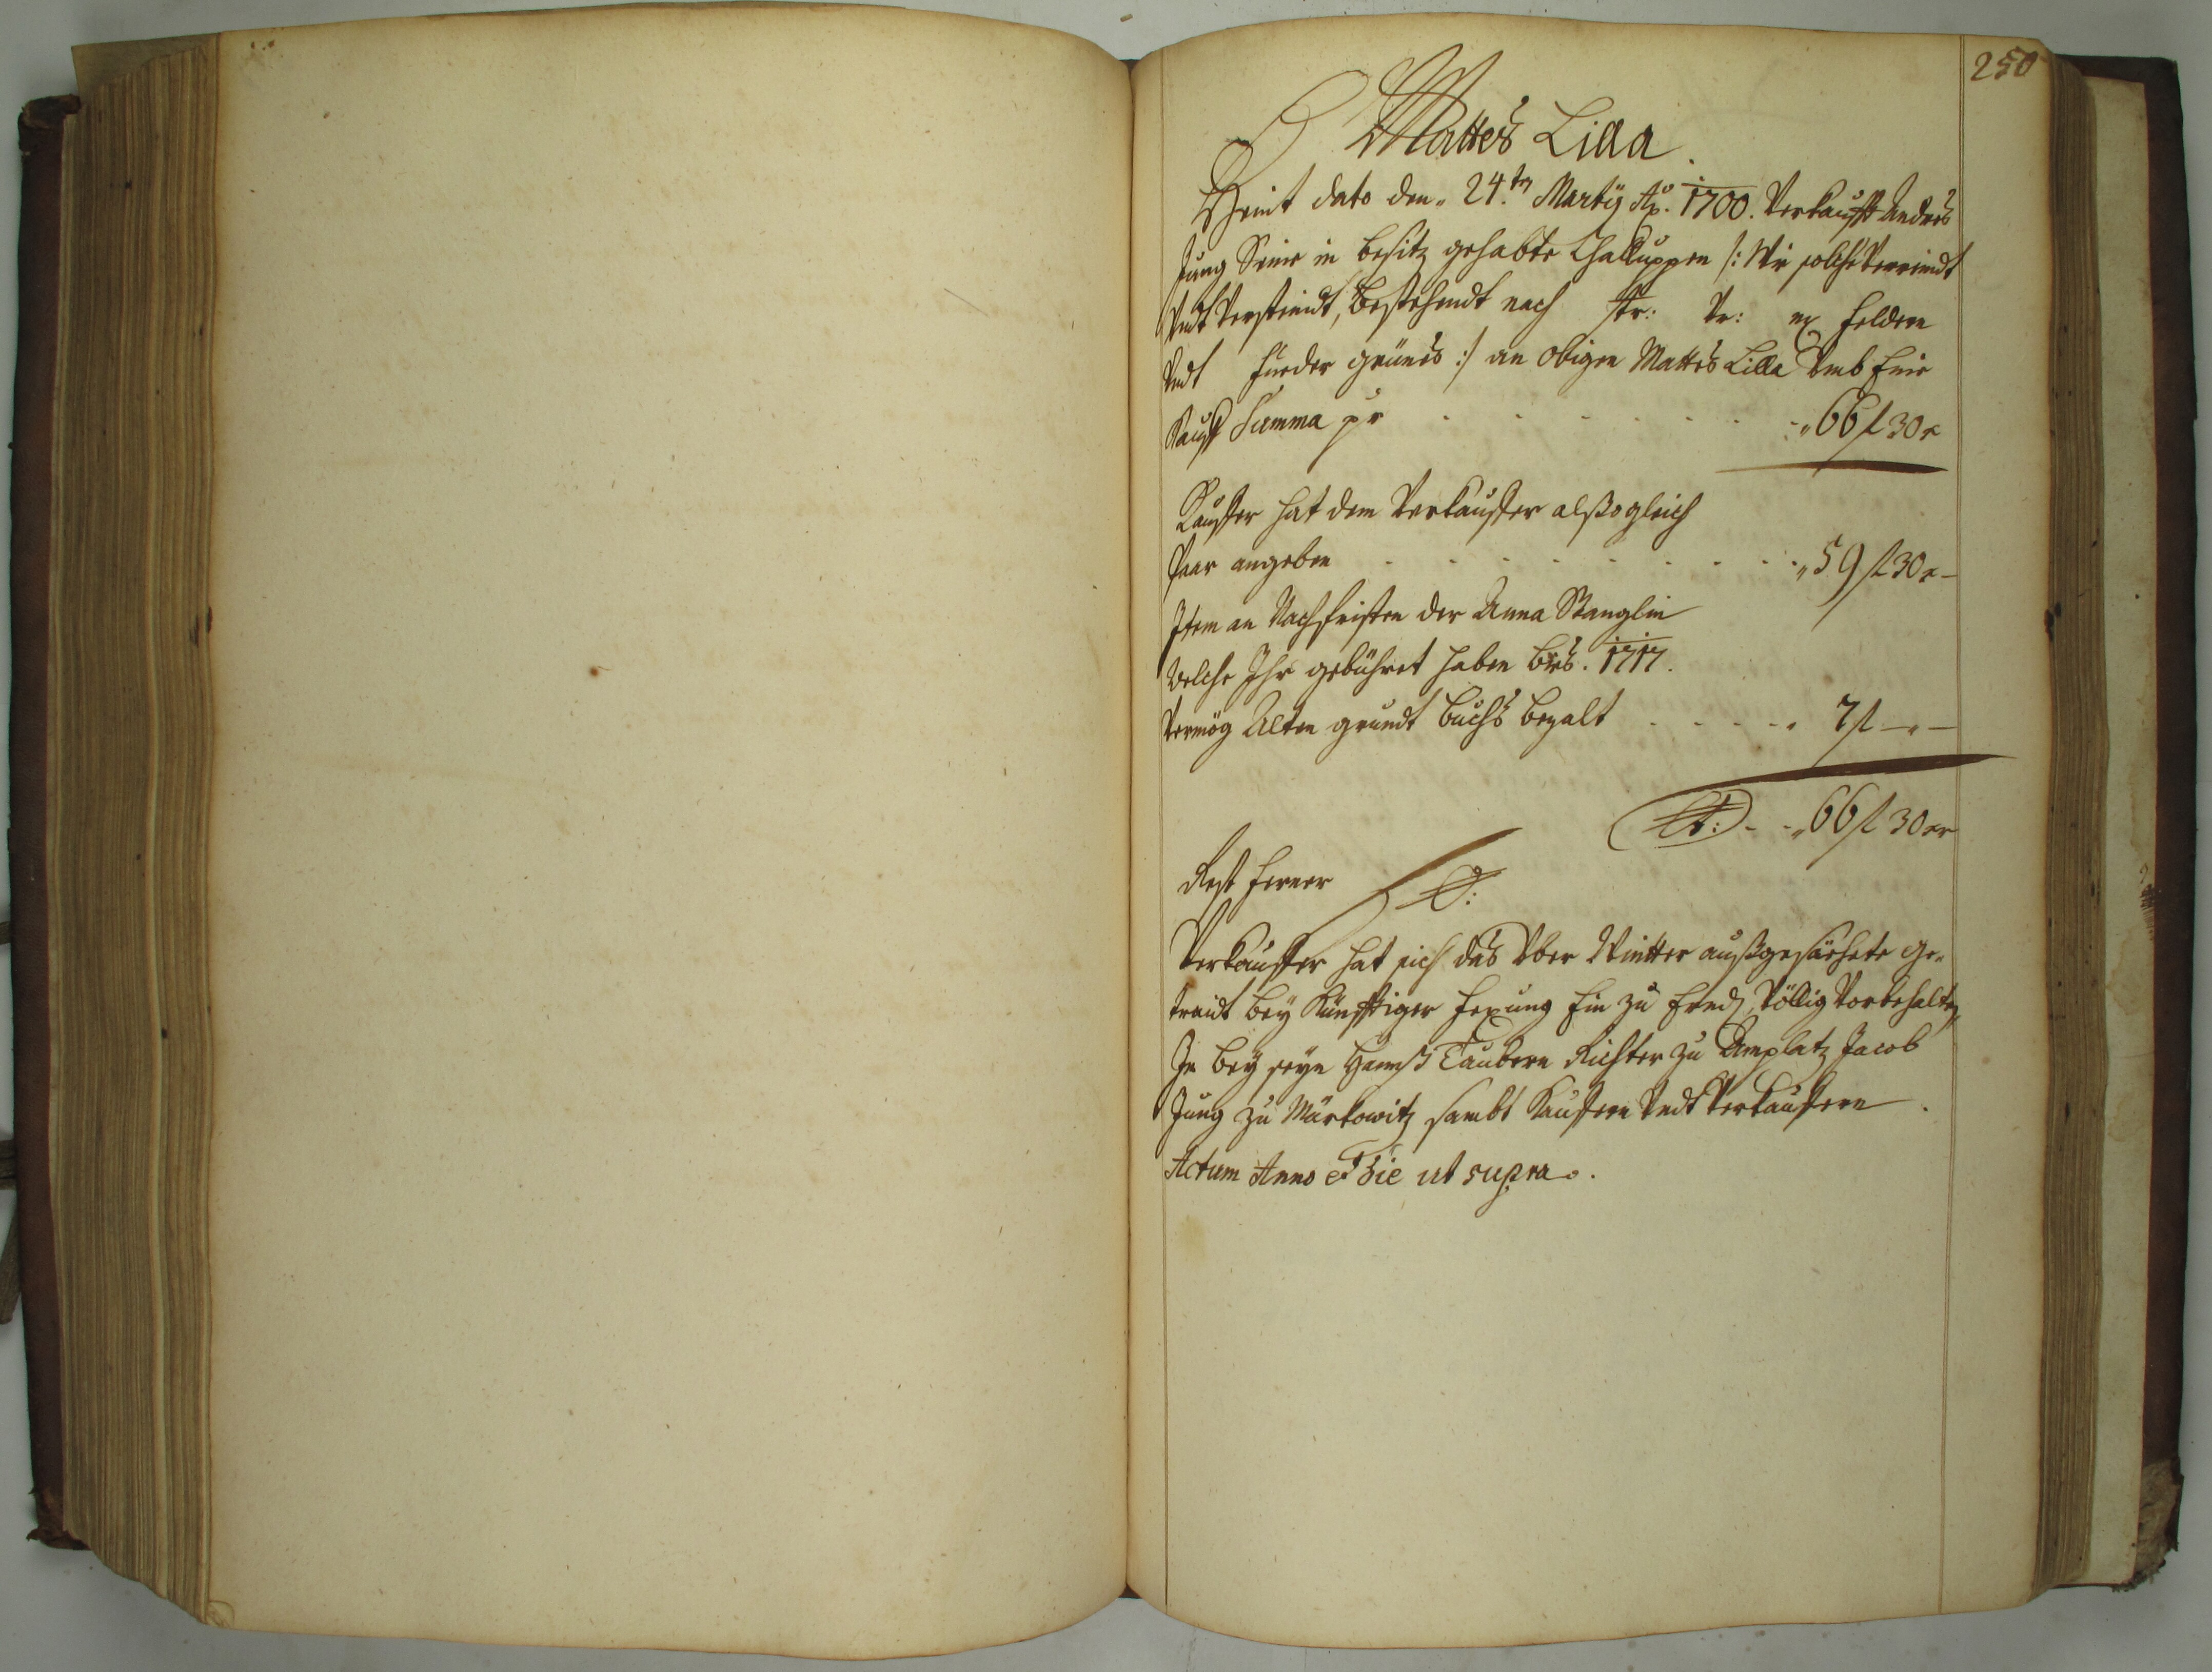 250
Mattes Lilla.
Heint dato den 24.ten Martÿ Ao. 1700. Verkaufft Andres
Jung Seine in besitz gehabte Challuppen /: Wie solche Verreindt
Undt Versteindt, bestehendt nach str: Vr: mz feldern
Undt fueder grünes :/ an obigen Mattes Lilla Vmb Eine
Kauff Summa pr - - - - - - - „66 f 30 x
Kauffer hat dem Verkauffer alßogleich
Paar angeben - - - - - - - „59 f 30 x –
Item an Nachfristen der Anna Stanglin
welche Ihr gebühret haben bis. 1717.
Vermög Alten grundt buchs bezalt - - - - „ 7 f – „ –
St: - - „66 f 30 xr
Rest ferner
Verkauffer hat sich das Vber Wintter außgesäehete ge„
traidt beÿ Künfftiger fexung hin zu Endt, Völlig Vorbehalten,
In beÿ seÿn Hanß Taubern Richter zu Amplatz Jacob
Jung zu Märkowitz sambt Kauffern Undt Verkauffern.
Actum Anno et Die ut supra.